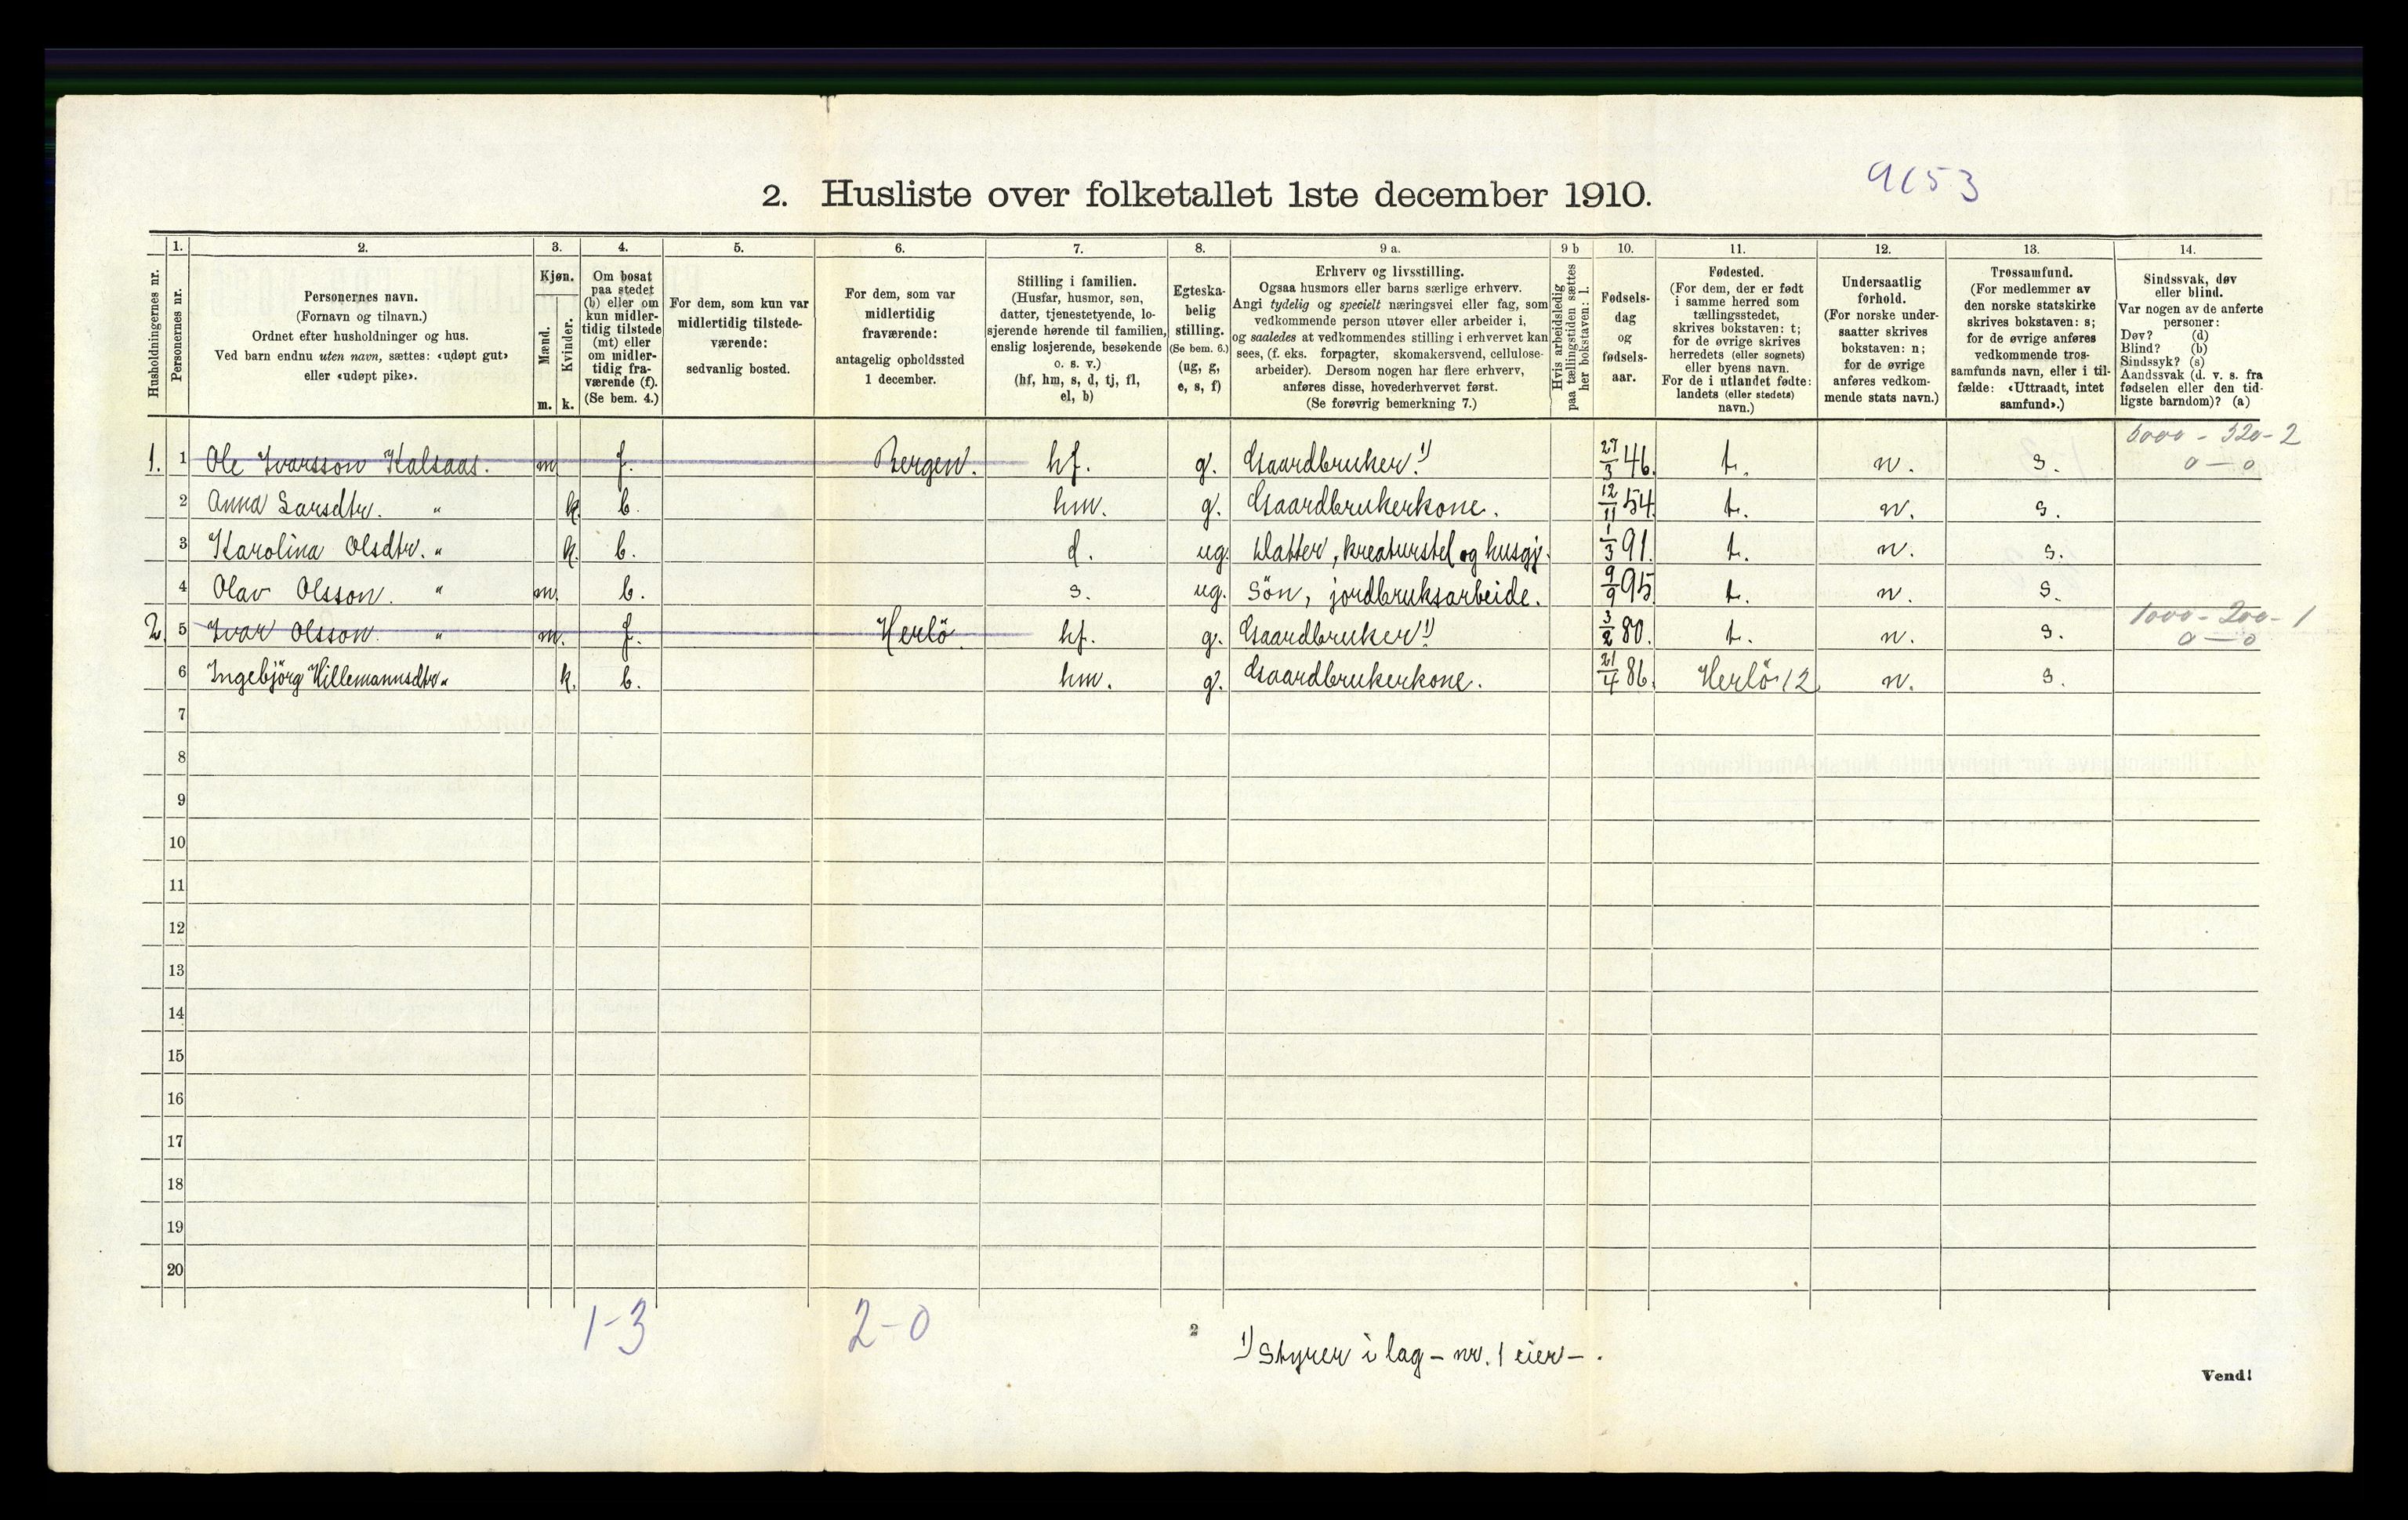 2. Husliste over folketallet 1ste december 1910.
9653
Husholdningernes nr.
1.
Personernes nr.
2.
Personernes navn.
(Fornavn og tilnavn.)
Ordnet efter husholdninger og hus.
Ved barn endnu uten navn, sættes: «udøpt gut»
eller «udøpt pike».
3.
Kjøn.
Mænd.
Kvinder.
m. k.
4.
Om bosat
paa stedet
(b) eller om
kun midler-
tidig tilstede
(mt) eller
om midler-
tidig fra-
værende (f).
(Se bem. 4.)
5.
For dem, som kun var
midlertidig tilstede-
værende:
sedvanlig bosted.
6.
For dem, som var
midlertidig
fraværende:
antagelig opholdssted
1 december.
7.
Stilling i familien.
(Husfar, husmor, søn,
datter, tjenestetyende, lo-
sjerende hørende til familien,
enslig losjerende, besøkende
o. s. v.)
(hf, hm, s, d, tj, fl,
el, b)
8.
Egteska-
belig
stilling.
(Se bem. 6.)
(ug, g,
e, s, f)
9 a.
Erhverv og livsstilling.
Ogsaa husmors eller barns særlige erhverv.
Angi tydelig og specielt næringsvei eller fag, som
vedkommende person utøver eller arbeider i,
og saaledes at vedkommendes stilling i erhvervet kan
sees, (f. eks. forpagter, skomakersvend, cellulose-
arbeider). Dersom nogen har flere erhverv,
anføres disse, hovederhvervet først.
(Se forøvrig bemerkning 7.)
9 b
Hvis arbeidsledig
paa tællingstiden sættes
her bokstaven: l.
10.
Fødsels-
dag
og
fødsels-
aar.
11.
Fødested.
(For dem, der er født
i samme herred som
tællingsstedet,
skrives bokstaven: t;
for de øvrige skrives
herredets (eller sognets)
eller byens navn.
For de i utlandet fødte:
landets (eller stedets)
navn.)
12.
Undersaatlig
forhold.
(For norske under-
saatter skrives
bokstaven: n;
for de øvrige
anføres vedkom-
mende stats navn.)
13.
Trossamfund.
(For medlemmer av
den norske statskirke
skrives bokstaven: s;
for de øvrige anføres
vedkommende tros-
samfunds navn, eller i til-
fælde: «Uttraadt, intet
samfund».)
14.
Sindssvak, døv
eller blind.
Var nogen av de anførte
personer:
Døv? (d)
Blind? (b)
Sindssyk? (s)
Aandssvak (d. v. s. fra
fødselen eller den tid-
ligste barndom)? (a)
1. 1 Ole Ivarsson Kalsaas. m f. Bergen. hf. g. Gaardbruker.1) 27/3 46. t. n. s. 6000 - 320 - 2
0 — 0
2 Anna Larsdtr. " k. b. hm. g. Gaardbrukerkone. 12/11 54. t. n. s.
3 Karolina Olsdtr. " k. b. d. ug. Datter, kreaturstel og husgj. 1/3 91. t. n. s.
4 Olav Olsson. " m. b. s. ug. Sön, jordbruksarbeide. 9/9 95 t. n. s.
2. 5 Ivar Olsson. " m. f. Herlö. hf. g. Gaardbruker1) 3/2 80. t. n. s. 1000 - 200 - 1
0 — 0
6 Ingebjörg Hillemannsdtr " k. b. hm. g. Gaardbrukerkone. 21/4 86. Herlö 12 n. s.
7
8
9
10
11
12
13
14
15
16
17
18
19
20
1-3 2-0
2
1) Styrer i lag - nr. 1 eier - .
Vend!